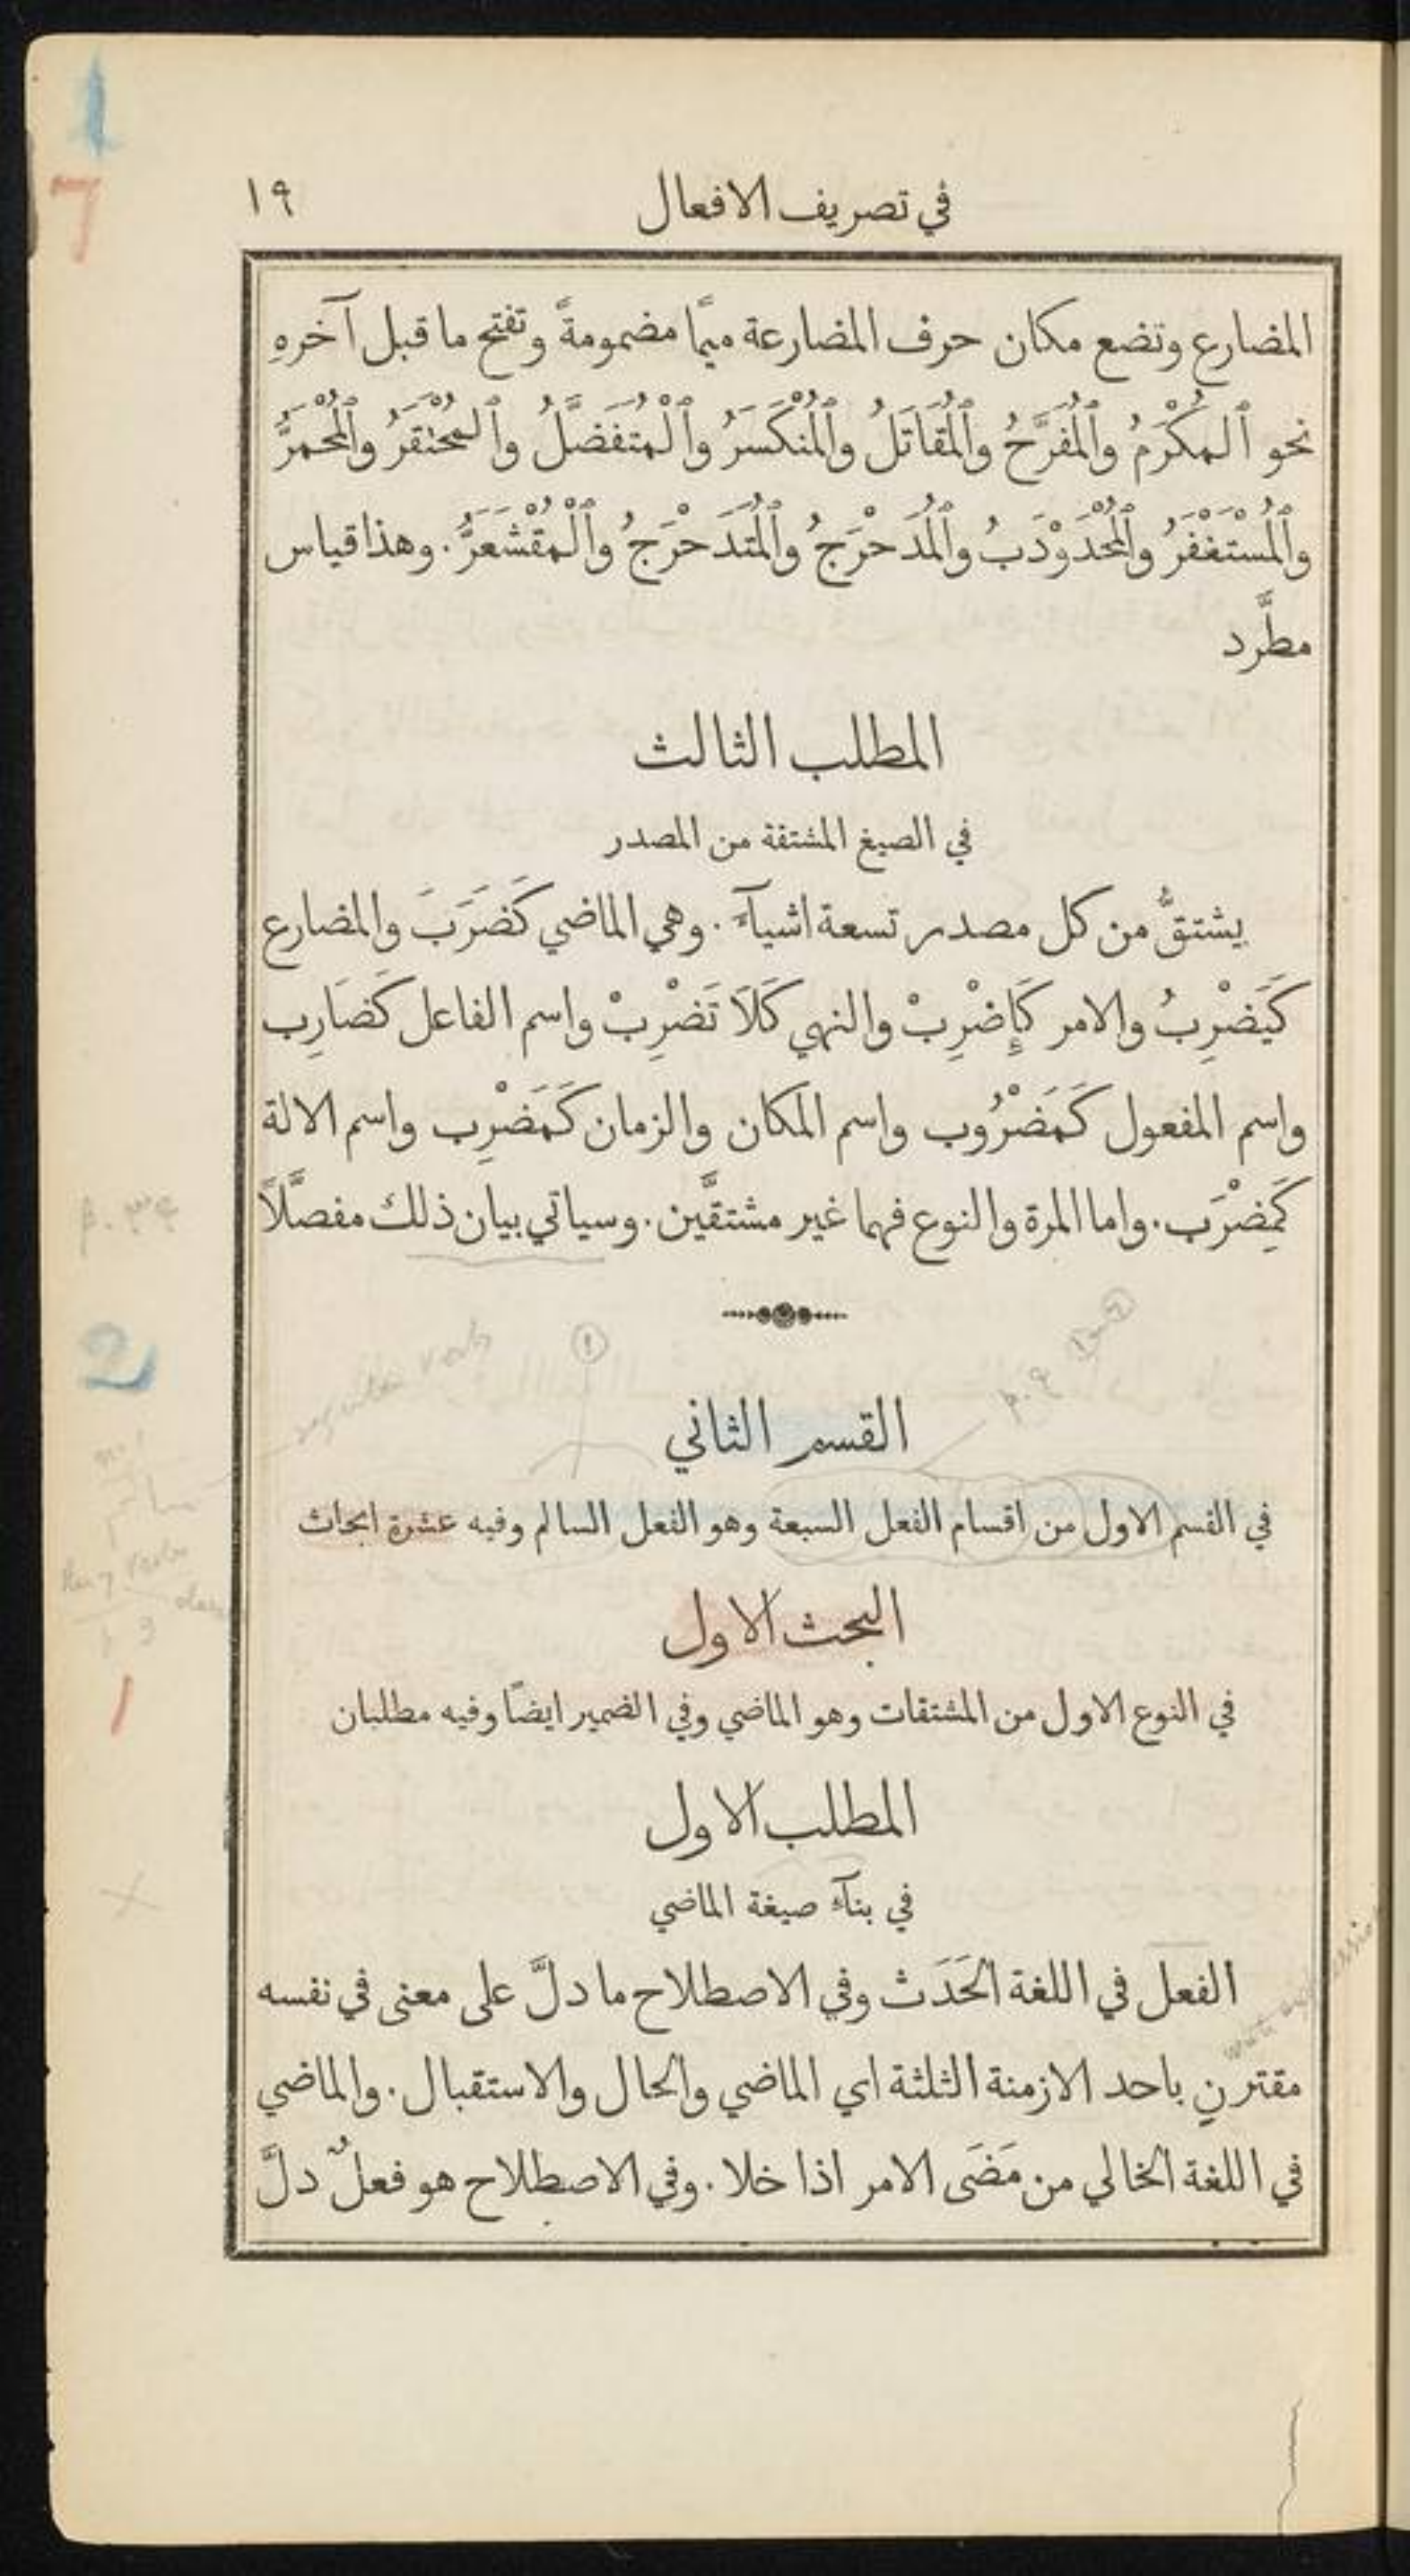 في تصريف الافعال ١٩
المضارع وتضع مكان حرف المضارعة ميمًا مضمومةً وتفتح ما قبل آخرهِ
نحو ٱلمُكْرَمُ وٱلْمُفَرَّحُ وٱلْمُقَاتَلُ وٱلْمُنْكَسَرُ وٱلْمُتَفَضَّلُ وٱلمُحْتَقَرُ وٱلْمُحْمَرُّ
وٱلْمُسْتَغْفَرُ وٱلْمُحْدَوْدَبُ وٱلْمُدَحْرَجُ وٱلْمُتَدَحْرَجُ وٱلْمُقْشَعَرُّ. وهذا قياس
مطَّرد
المطلب الثالث
في الصيغ المشتقة من المصدر
يشتقُّ من كل مصدر تسعة اشيآءَ. وهي الماضي كَضَرَبَ والمضارع
كَيَضْرِبُ والامر كَإِضْرِبْ والنهي كَلَا تَضْرِبْ واسم الفاعل كَضَارِب
واسم المفعول كَمَضْرُوب واسم المكان والزمان كَمَضْرِب واسم الالة
كَمِضْرَب. واما المرة والنوع فهما غير مشتقَّين. وسياتي بيان ذلك مفصَّلاً
p. ٣٤
2
regular verb
1
p. ٩
القسم الثاني
في القسم الاول من اقسام الفعل السبعة وهو الفعل السالم وفيه عشرة ابحاث
البحث الاول
في النوع الاول من المشتقات وهو الماضي وفي الضمير ايضًا وفيه مطلبان
المطلب الاول
في بنآء صيغة الماضي
الفعل في اللغة الحَدَث وفي الاصطلاح ما دلَّ على معنى في نفسه
مقترنٍ باحد الازمنة الثلثة اي الماضي والحال والاستقبال. والماضي
في اللغة الخالي من مَضَى الامر اذا خلا. وفي الاصطلاح هو فعلٌ دلَّ